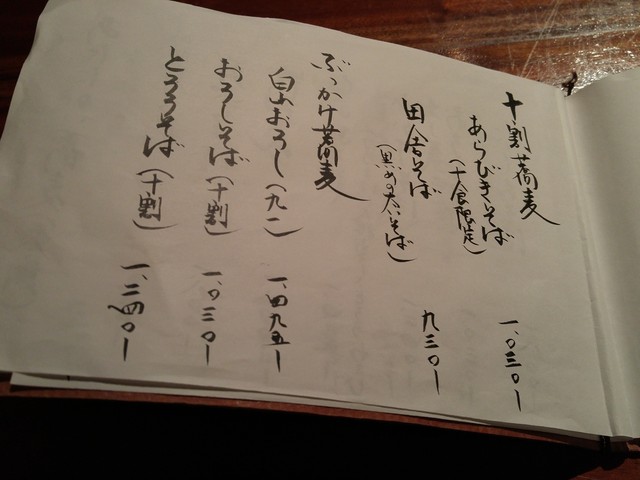 十割蕎麦
あらびきそば
(十食限定)
一、〇三〇ー
田舎そば
(黒めの太いそば)
九三〇ー
ぶっかけ蕎麦
白山おろし(九一)
一、四九五ー
おろしそば(十割)
一、〇三〇ー
とろろそば(十割)
一、二四〇ー